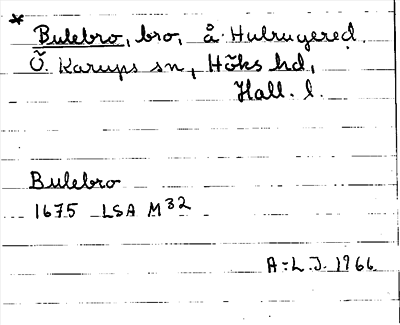 * Bulebro, bro, å Hulrugered.
Ö. Karups sn, Höks hd,
Hall. l.
Bulebro
1675 LSA M32
A-L.J. 1966